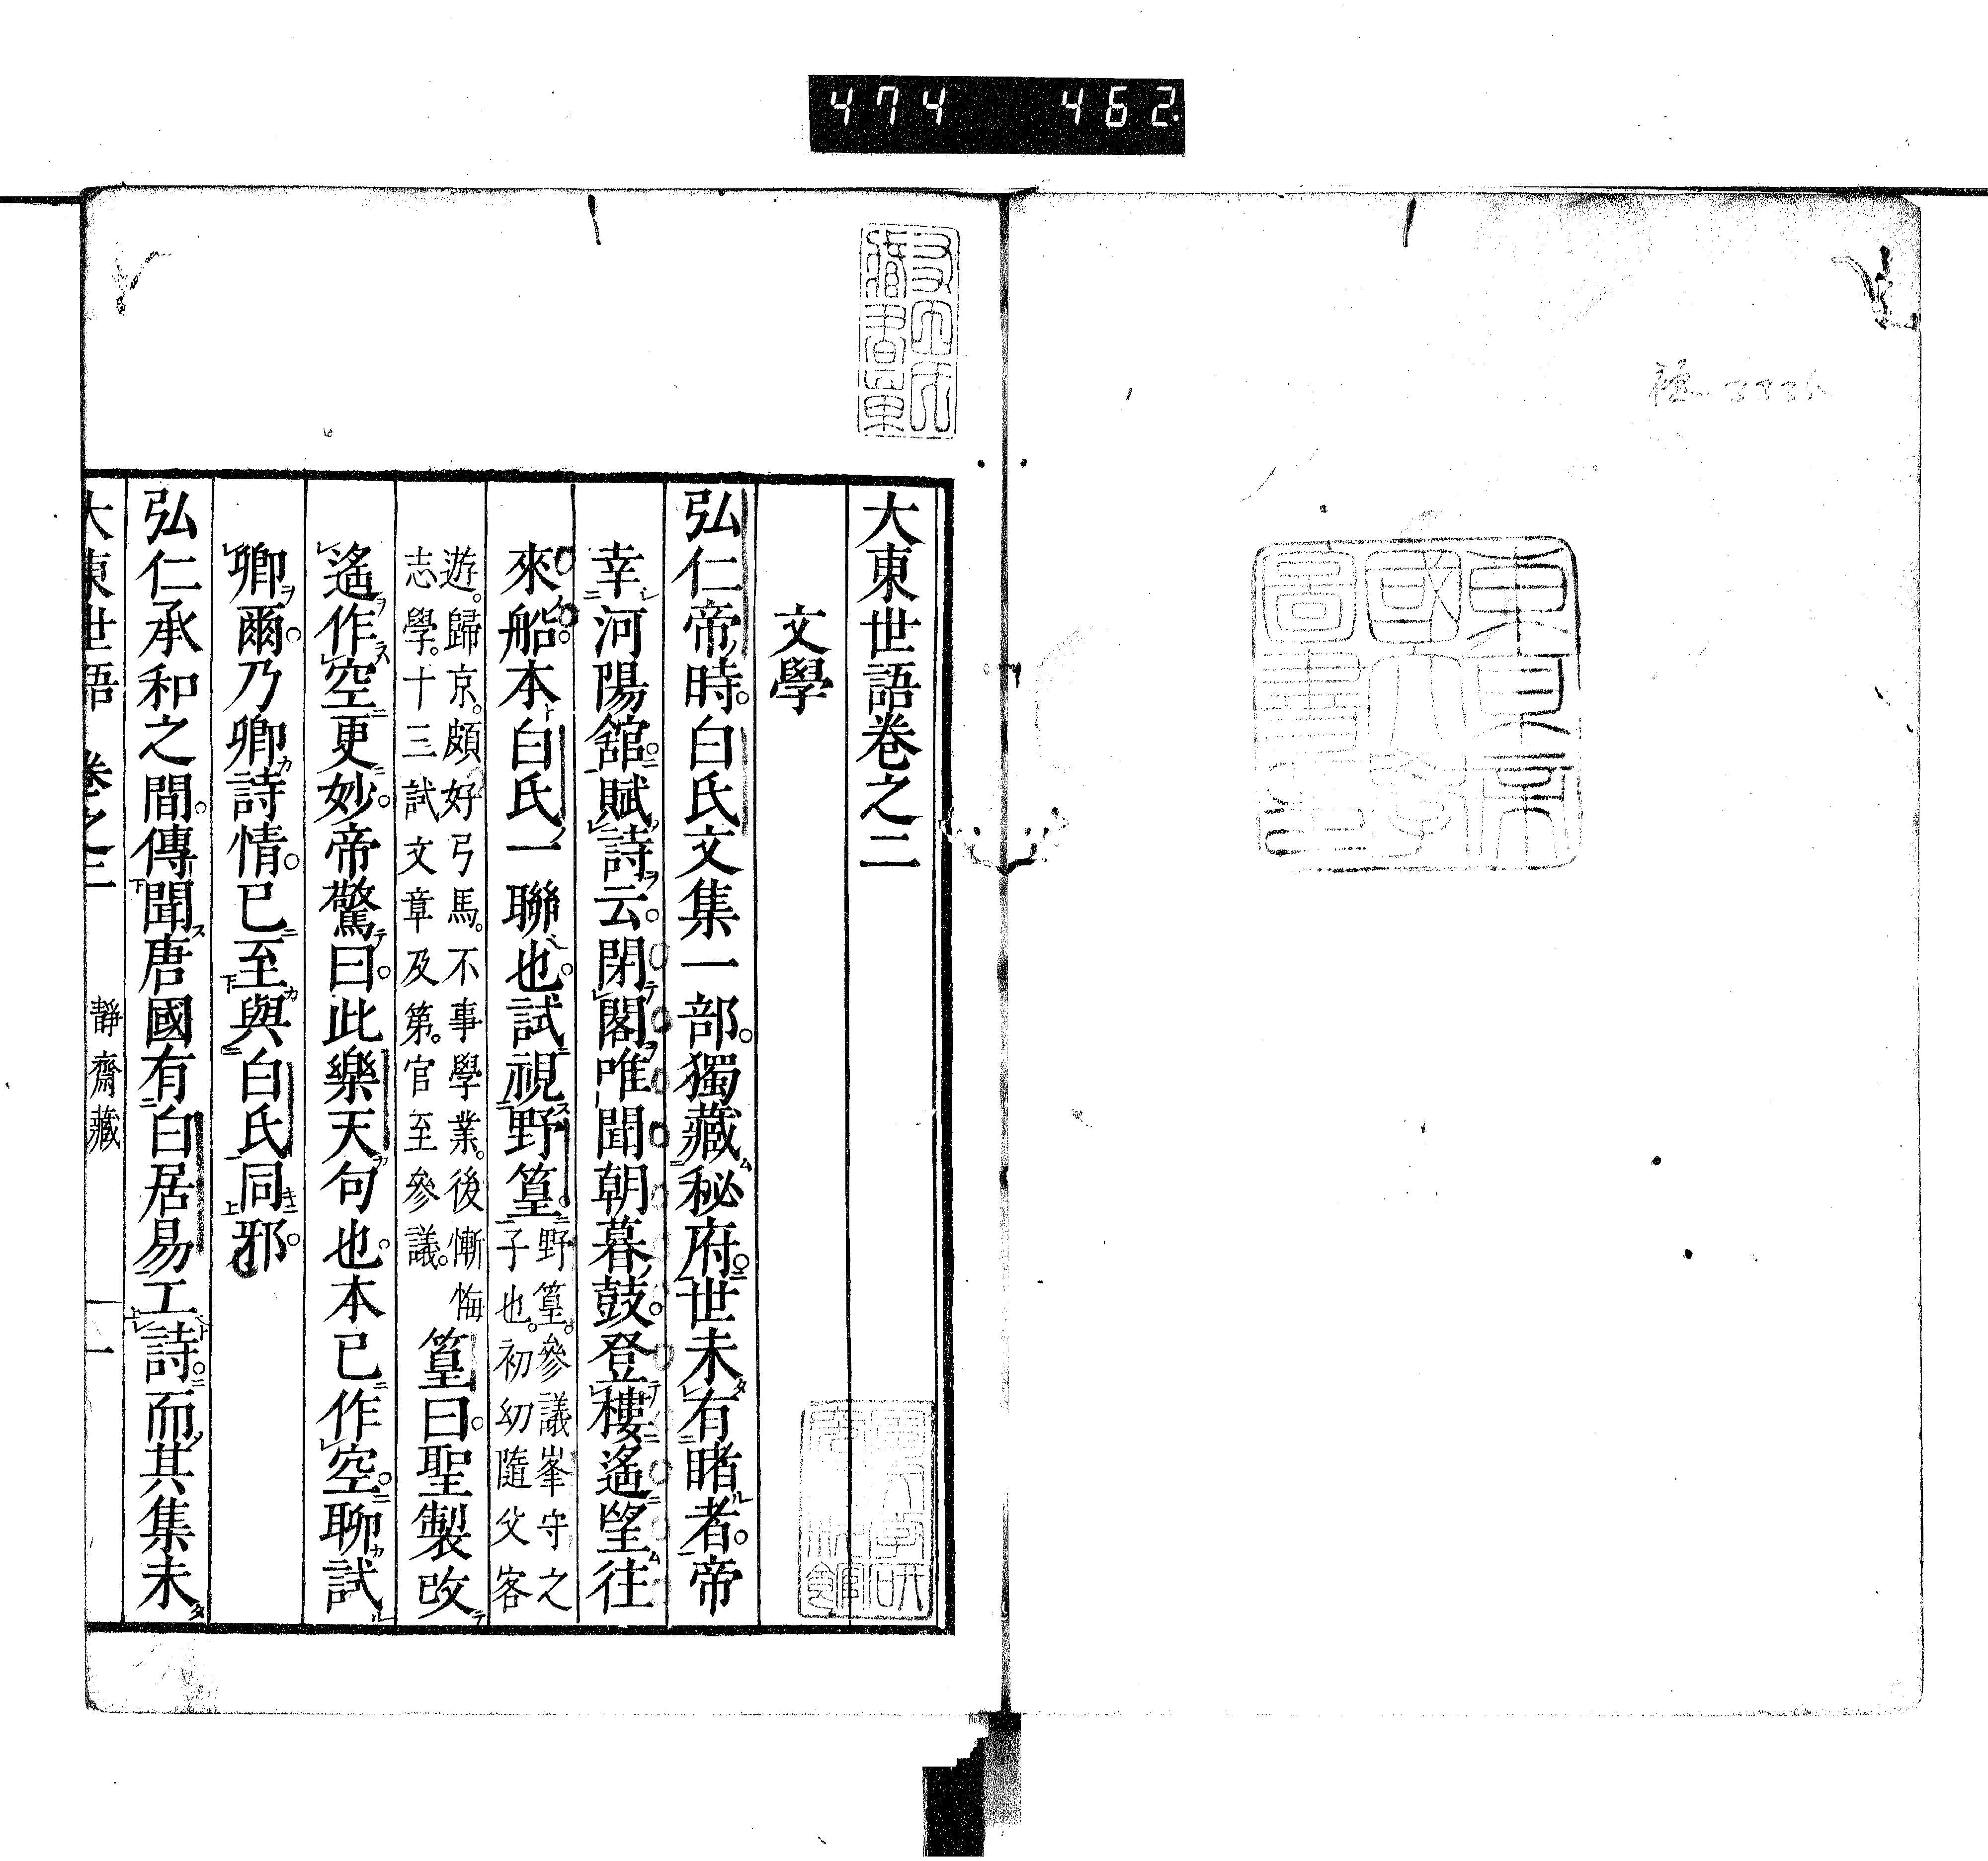 474 462
東京帝
國大學
圖書印
藏書章
大東世語卷之二
文學
弘仁帝時。白氏文集一部。獨藏秘府。世未有睹者。帝
幸河陽舘。賦詩云。閉閣唯聞朝暮鼓。登樓遙望往
來船。本白氏一聯也。試視野篁。野篁。參議峯守之
子也。初幼隨父客
遊。歸京。頗好弓馬。不事學業。後慚悔
志學。十三試文章及第。官至參議。
篁曰。聖製改
遙作空更妙。帝驚曰。此樂天句也。本已作空。聊試
卿爾。乃卿詩情。已至與白氏同邪。
弘仁承和之間。傳聞唐國有白居易工詩。而其集未
大東世語 卷之二 一 靜齋藏